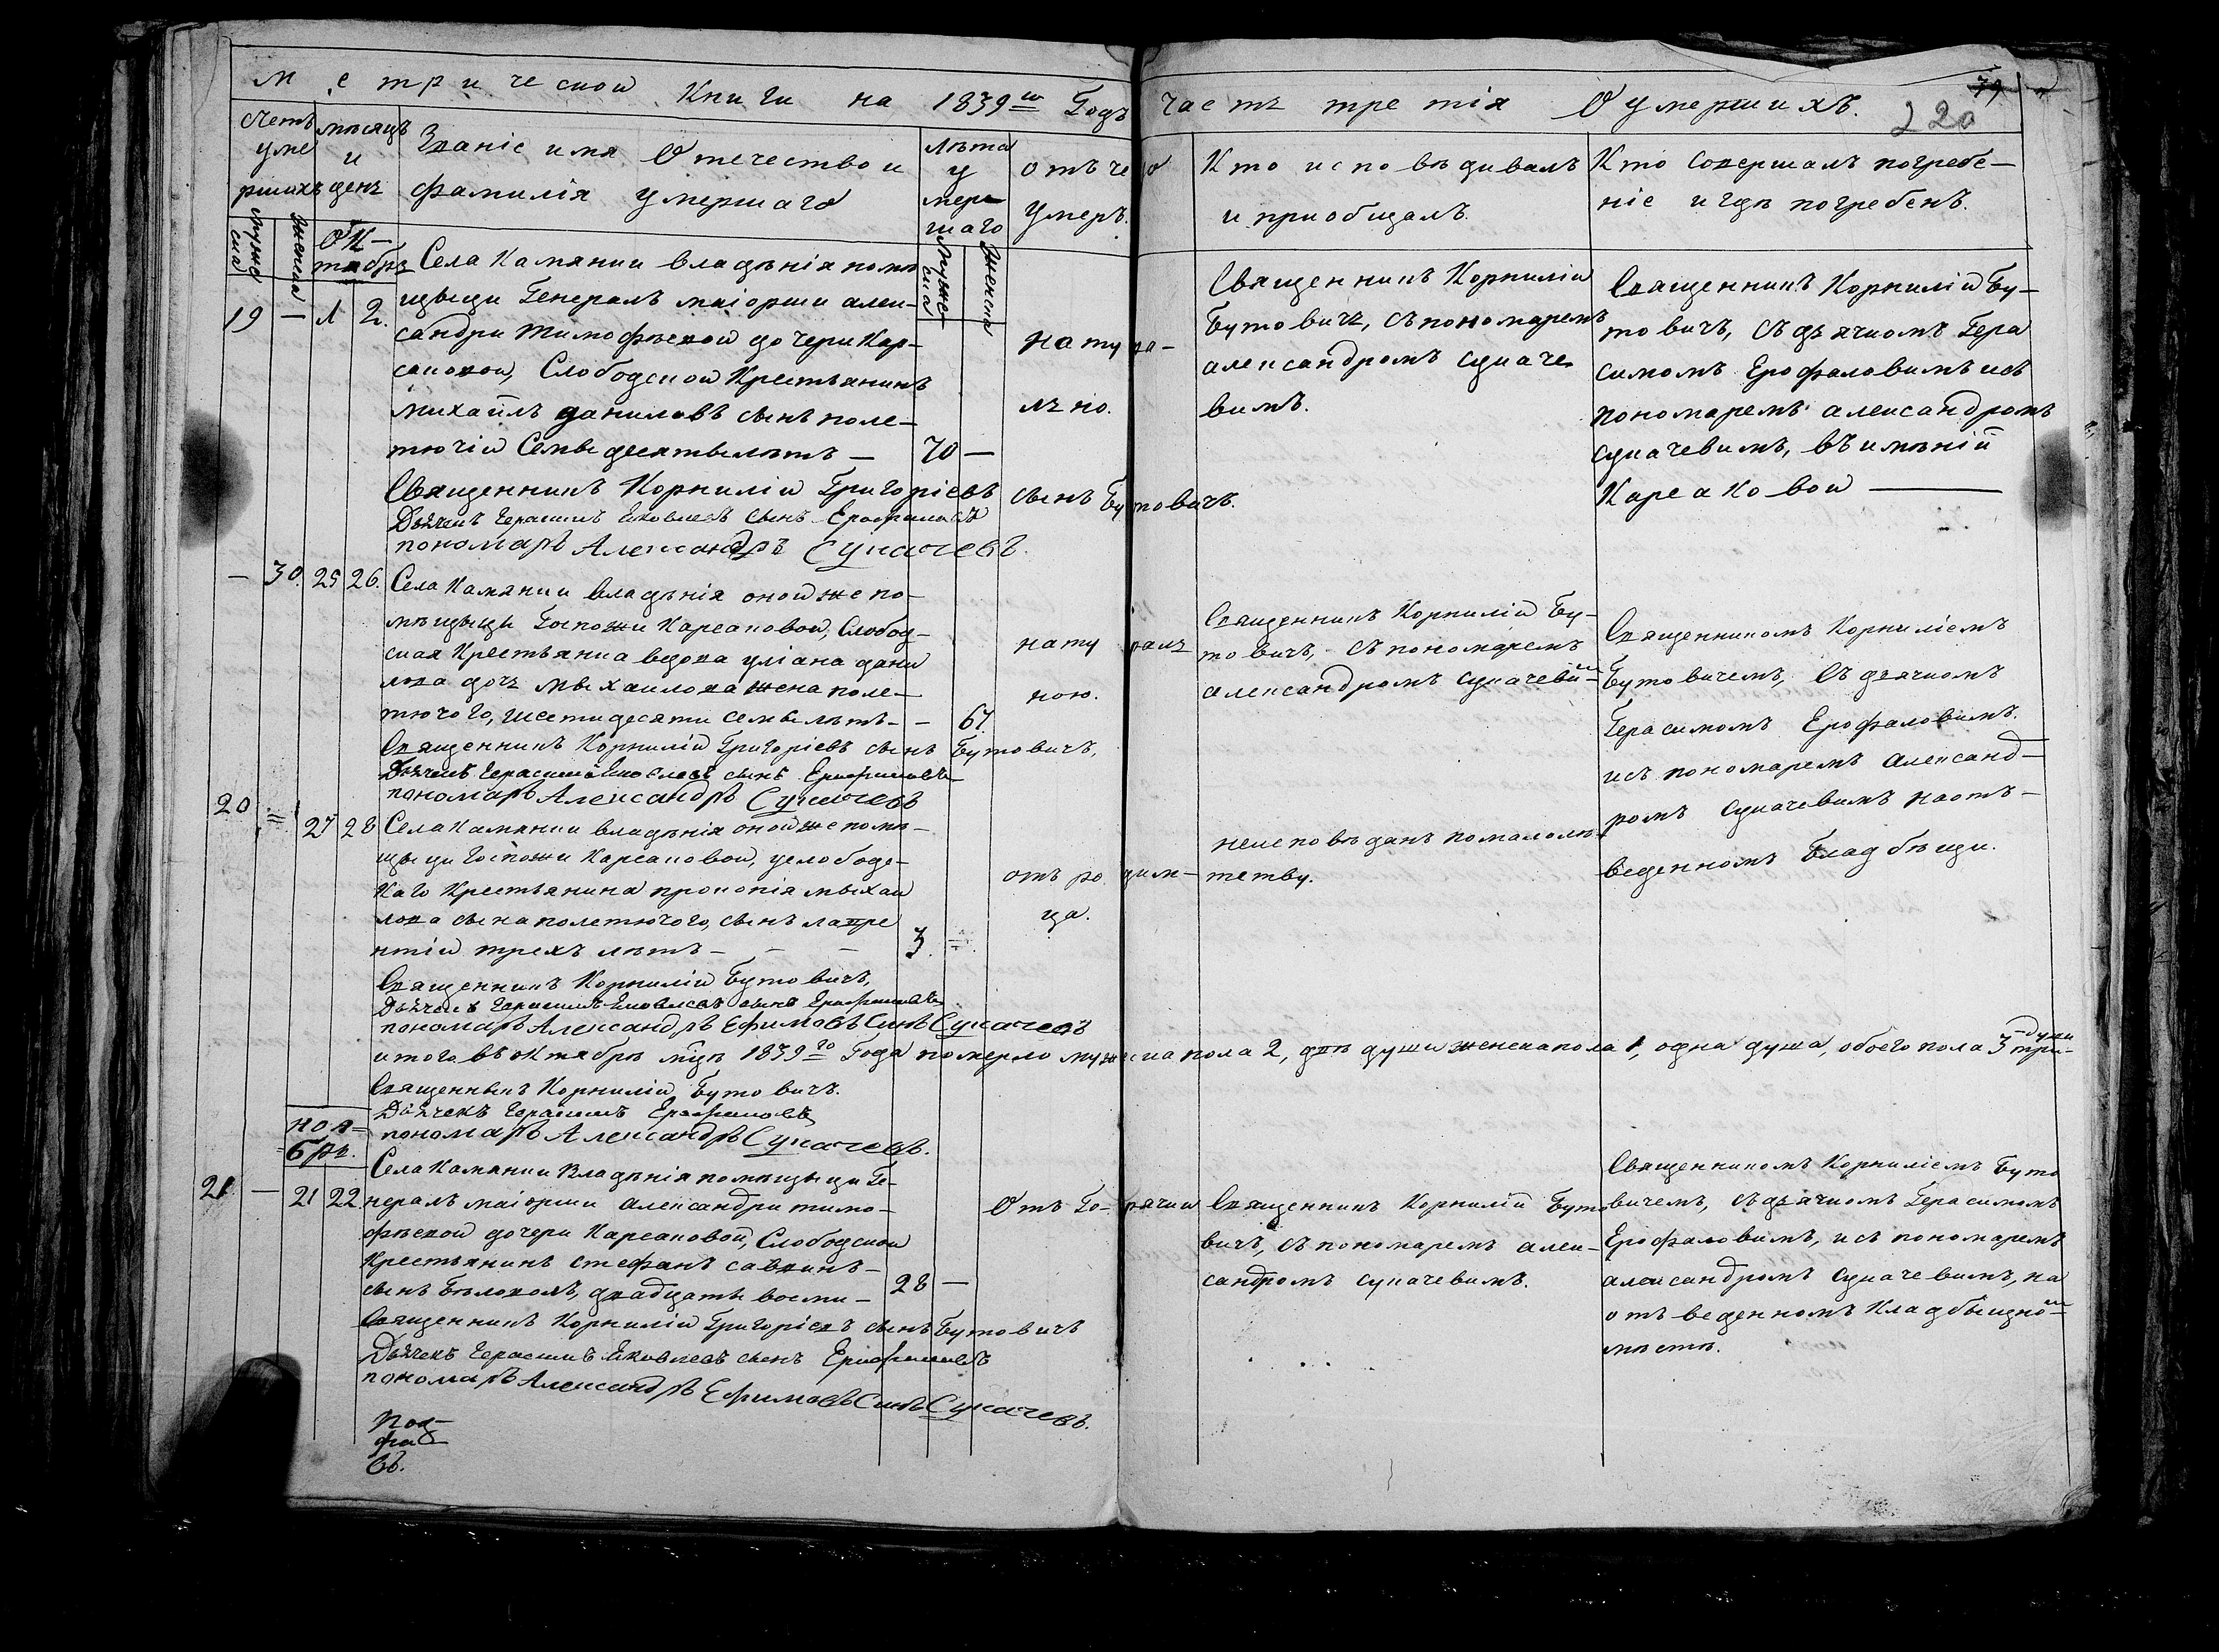 Метрической Книги на 1839й Годъ часть третія О умершихъ.
79
220
Счетъ умершихъ
мѣсяцъ и день
Званіе имя Отечество и
фамилія умершаго
Лѣта умершаго
отъ чего
умеръ.
Кто исповѣдивалъ
и приобщалъ.
Кто совершалъ погребе-
ніе и гдѣ погребенъ.
мужеска
женска
мужеска
женска
Ок-
тября
19 — 1 2.
Села Камянки владѣнія помѣ
щыци Генералъ маіорши алек-
сандри тимофѣевой дочери Кар-
саковой, Слободской Крестьянинъ
михаилъ даниловъ сынъ поле-
тючій Семьдесятьлѣтъ —
70 —
натура-
льно.
Священникъ Корнилій
Бутовичь, съ пономаремъ
александромъ сукаче
вимъ.
Священникъ Корнилій Бу-
товичъ, съ дьячкомъ Гера
симомъ Ерофаловимъ исъ
пономаремъ александромъ
сукачевимъ, въ имѣніи
Карсаковой —
Священникъ Корнилій Григоріевъ сынъ Бутовичъ.
Дьячекъ Герасимъ Яковлевъ сынъ Ерофаловъ
пономарь Александръ Сукачевъ.
— 30. 25 26.
Села Камянки владѣнія оной же по-
мѣщыци Госпожи Карсаковой, Слобод-
ская Крестьянка вдова уліана дани
лова дочь мыхаилова жена поле-
тючого, шестидесяти семь лѣтъ — —
67.
натураль
ною.
Священникъ Корнилій Бу-
товичъ, съ пономаремъ
александромъ сукачевим
Священникомъ Корниліемъ
Бутовичемъ, съ дьячкомъ
Герасимомъ Ерофаловимъ
исъ пономаремъ александ-
ромъ сукачевимъ на отъ-
веденномъ Кладбѣщи.
Священникъ Корнилій Григоріевъ сынъ Бутовичъ,
Дьячекъ Герасимъ Яковлевъ сынъ Ерофаловъ
пономарь Александръ Сукачевъ
20 = 27 28
Села Камянки владѣнія оной же помѣ-
щыци Госпожи Карсаковой, услободс-
каго Крестьянина прокопія мыхаи
лова сына полетючого, сынъ лавре
нтій трехъ лѣтъ — — —
3. =
отъ родим-
ца.
неисповѣданъ помалолѣ-
тетву.
Священникъ Корнилій Бутовичъ,
Дьячекъ Герасимъ Яковлевъ сынъ Ерофаловъ
пономарь Александръ Ефимовъ Синъ Сукачевъ
итого въ октябрѣ мцѣ 1839го Года померло мужеска пола 2, двѣ души женска пола 1, одна душа, обоего пола 3 три души
Священникъ Корнилій Бутовичъ.
Дьячекъ Герасимъ Ерофаловъ
пономарь Александръ Сукачевъ.
ноя-
брь.
21 — 21 22.
Села Камянки Владѣнія помѣщыци Ге-
нералъ маіорши александри тимо-
фѣевой дочери Карсаковой, Слободской
Крестьянинъ стефанъ саввинъ-
сынъ Бѣловолъ, двадцать восми —
28 —
Отъ Го-рячки
Священникъ Корнилій Буто
вичъ, съ пономаремъ алек-
сандромъ сукачевимъ.
Священникомъ Корниліемъ Буто
вичемъ, съ дьячкомъ Герасимомъ
Ерофаловимъ, исъ пономаремъ
александромъ сукачевимъ, на
отъведенномъ Кладбищном
мѣстѣ.
Священникъ Корнилій Григоріевъ сынъ Бутовичъ
Дьячекъ Герасимъ Яковлевъ сынъ Ерофаловъ
пономарь Александръ Ефимовъ Синъ Сукачевъ.